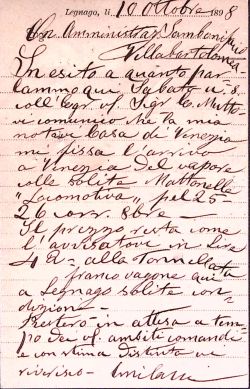 Legnago, li 10 Ottobre 1898
On. Amministraz. Sambonifacio
Villabartolomea
In esito a quanto par
lammo qui, Sabato u. s.
coll' Egr. Sigr
vi comunico che la mia
notave Casa di Venezia
mi fissa l'arrivo
a Venezia del vapore
colle solite Mattonelle
"Locomotiva" pel 25-
26 corr. 8bre -
Il prezzo resta come
l'avvisatovi in Lire
alla Tonnellata
franco vagone qui
a Legnago solite con
dizioni -
in attesa a tem
po dei ambiti comandi
e con stima distinta vi
riverisco -